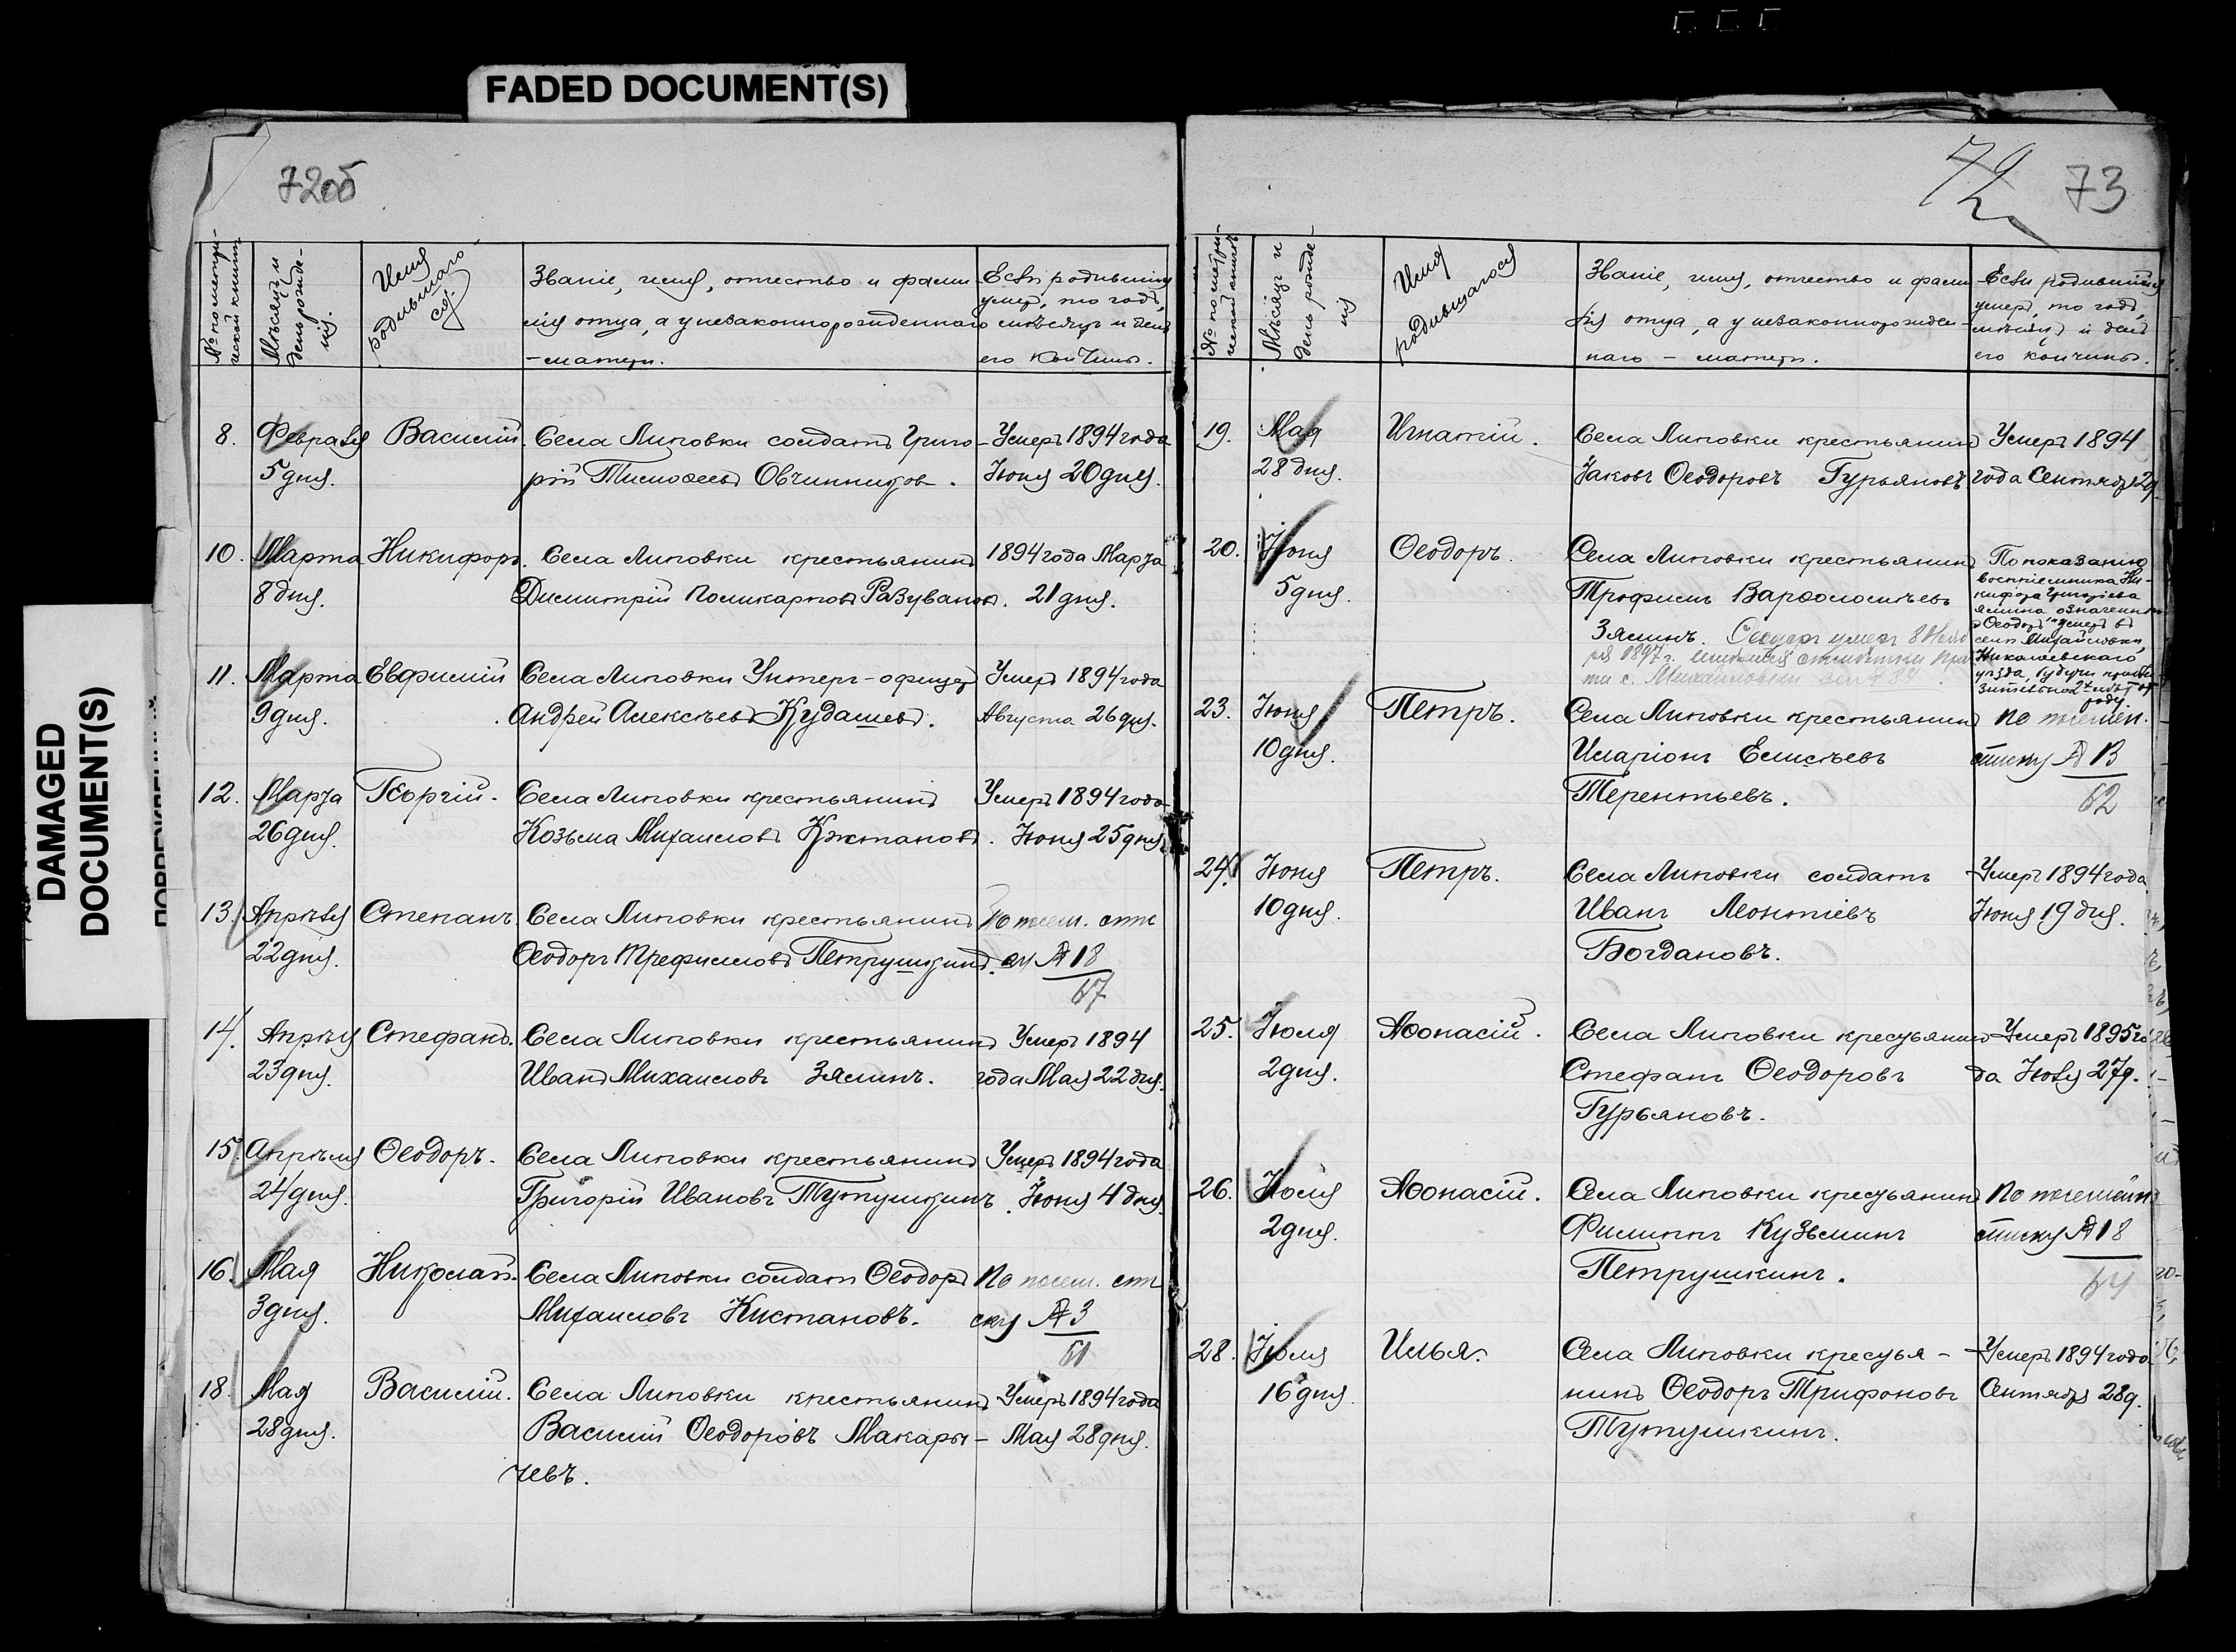 FADED DOCUMENT(S)
DAMAGED
DOCUMENT(S)
72об
№ по метри-
ческой книгѣ
Мѣсяцъ и
день рожде-
нія.
Имя
родившаго
ся.
Званіе, имя, отчество и фами-
лія отца, а у незаконнорожденнаго
- матери.
Если родившійся
умеръ, то годъ,
мѣсяцъ и день
его кончины.
8. Февраля Василій. Села Липовки солдатъ Григо- Умеръ 1894 года
5 дня. рій Тимоѳеевъ Овчинниковъ. Іюня 20 дня.
10. Марта Никифоръ. Села Липовки крестьянинъ 1894 года Марта
8 дня. Димитрій Поликарповъ Разувановъ. 21 дня.
11. Марта Евѳимій Села Липовки Унтеръ-офицеръ Умеръ 1894 года
9 дня. Андрей Алексѣевъ Кудашевъ. Августа 26 дня.
12. Марта Георгій. Села Липовки крестьянинъ Умеръ 1894 года
26 дня. Козьма Михаиловъ Кистановъ. Іюня 25 дня
13. Апрѣля Степанъ. Села Липовки крестьянинъ По посем. спи
22 дня. Ѳеодоръ Трефиловъ Петрушкинъ. ску № 18
67
14. Апрѣля Стефанъ. Села Липовки крестьянинъ Умеръ 1894
23 дня. Иванъ Михаиловъ Зяминъ. года Мая 22 дня.
15. Апрѣля Ѳеодоръ. Села Липовки крестьянинъ Умеръ 1894 года
24 дня. Григорій Ивановъ Тутушкинъ. Іюня 4 дня
16. Мая Николай. Села Липовки солдатъ Ѳеодоръ По посем. спи
3 дня. Михаиловъ Кистановъ. ску № 3
61
18. Мая Василій. Села Липовки крестьянинъ Умеръ 1894 года
28 дня. Василій Ѳеодоровъ Макары- Мая 28 дня.
чевъ.
72 73
№ по метри-
ческой книгѣ
Мѣсяцъ и
день рожде-
нія
Имя
родившагося
Званіе, имя, отчество и фами-
лія отца, а у незаконнорожден-
наго - матери.
Если родившійся
умеръ, то годъ,
мѣсяцъ и день
его кончины.
19. Мая Игнатій. Села Липовки крестьянинъ Умеръ 1894
28 дня. Іаковъ Ѳеодоровъ Гурьяновъ. года Сентяб. 2 д.
20. Іюня Ѳеодоръ. Села Липовки крестьянинъ По показанію
воспріемника Ни-
5 дня. Трофимъ Варѳоломѣевъ кифора Григорьева
Зямина означенный
Зяминъ. умеръ 8 Ѳеодоръ умеръ въ
1897 г. селѣ Михайловкѣ,
с. Михайловки Николаевскаго
уѣзда, будучи
году.
23. Іюня Петръ. Села Липовки крестьянинъ По посемен.
10 дня. Иларіонъ Елисѣевъ списку № 13
Терентьевъ. 62
24. Іюня Петръ. Села Липовки солдатъ Умеръ 1894 года
10 дня. Иванъ Леонтіевъ Іюня 19 дня.
Богдановъ.
25. Іюля Аѳонасій. Села Липовки крестьянинъ Умеръ 1895 го
2 дня. Стефанъ Ѳеодоровъ да Іюля 27 д.
Гурьяновъ.
26. Іюля Аѳонасій. Села Липовки крестьянинъ По посемейн.
2 дня. Филиппъ Кузьминъ списку № 18
Петрушкинъ. 64
28. Іюля Илья. Села Липовки крестья- Умеръ 1894 года
16 дня. нинъ Ѳеодоръ Трифоновъ Сентября 28 д.
Тутушкинъ.